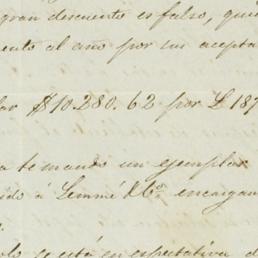 gran descuento es falso, qui
ento al año por su acepta
lar $10.280.62 por £ 187
a te mando un ejemplar
ido á Lemmé &Cª encargan
olo se está en espectativa d